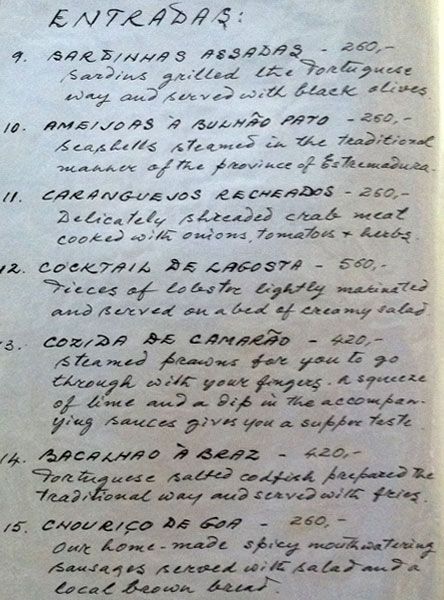 ENTRADAS:
9. SARDINHAS ASSADAS - 260,-
Sardins grilled the Portuguese
way and served with black olives.
10. AMEIJOAS À BULHÃO PATO - 260,-
Seashells steamed in the traditional
manner of the province of Estremadura.
11. CARANGUEJOS RECHEADOS - 260,-
Delicately shreaded crab meat
cooked with onions, tomatoes + herbs.
12. COCKTAIL DE LAGOSTA - 560,-
Pieces of lobster lightly marinated
and served on a bed of creamy salad
3. COZIDA DE CAMARÃO - 420,-
Steamed prawns for you to go
through with your fingers. A squeeze
of lime and a dip in the accompan-
ying sauces gives you a supper taste.
14. BACALHAO À BRAZ - 420,-
Portuguese salted codfish prepared the
traditional way and served with fries.
15. CHOURIÇO DE GOA - 260,-
Our home-made spicy mouthwatering
sausages served with salad and a
local brown bread.